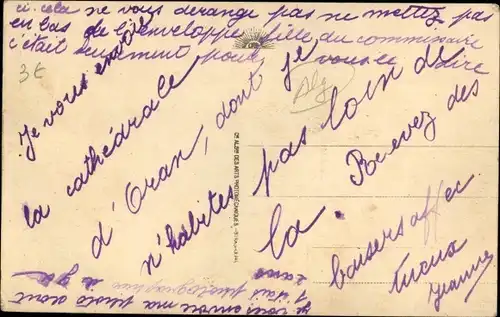 si cela ne vous dérange pas ne mettez pas
en bas de l'enveloppe fille du commissaire
c'était seulement pour vous le dire
3€
Alg
Je vous envoie
la cathédrale
d'Oran, dont je
n'habites pas loin de
la. Recevez des
baisers affec
tueux
Jeanne
Cie ALSne DES ARTS PHOTOMÉCANIQUES
je vous envoie ma photo dont
j'étais photographiée a
2 ans